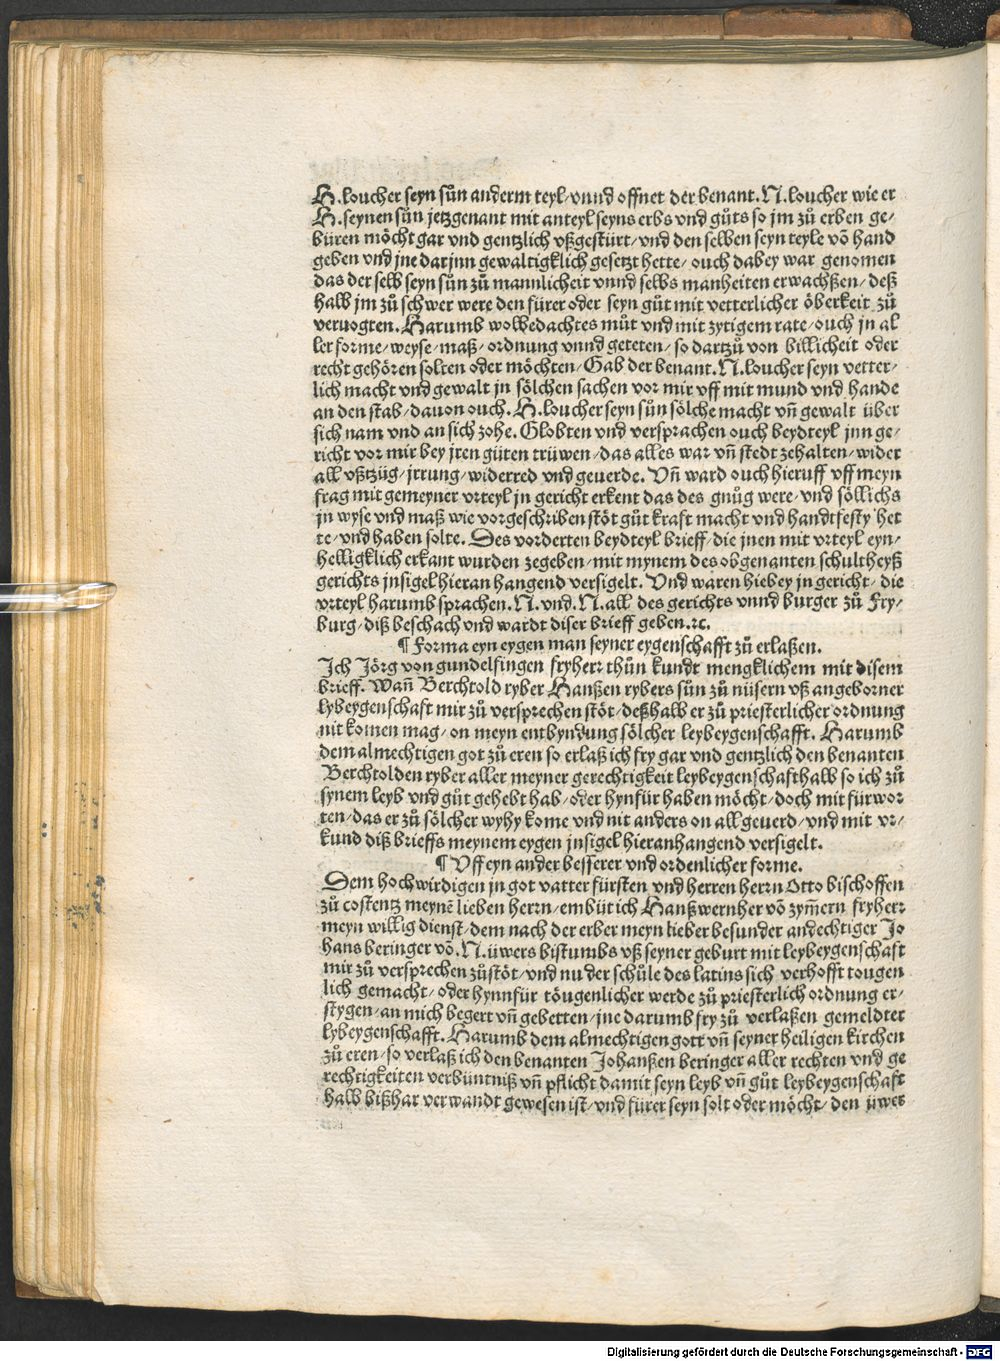 H.loucher seyn sůn anderm teyl/vnnd offnet der benant.N.loucher wie er
H.seynen sůn jetzgenant mit anteyl seyns erbs vnd gůts so jm zů erben ge/
büren möcht gar vnd gentzlich vßgestürt/vnd den selben seyn teyle võ hand
geben vnd jne dar jnn gewaltigklich gesetzt hette/ ouch dabey war genomen
das der selb seyn sůn zů mannlicheit vnnd selbs manheiten erwachßen/ deß
halb jm zů schwer were den fürer oder seyn gůt mit vetterlicher öberkeit zů
veruogten. Harumb wolbedachtes můt vnd mit zytigem rate/ ouch jn al
ler forme/ weyse/ maß/ ordnung vnnd geteten/ so dartzů von billicheit oder
recht gehören solten oder möchten/ Gab der benant.N.loucher seyn vetter/
lich macht vnd gewalt jn sölchen sachen vor mir vff mit mund vnd hande
an den stab/ dauon ouch.H.loucher seyn sůn sölche macht vñ gewalt über
sich nam vnd an sich zohe. Globten vnd versprachen ouch beydteyl jnn ge/
richt vor mir bey jren gůten trüwen/ das alles war vñ stedt zehalten/ wider
all vßtzüg/ jrrung/ widerred vnd geuerde. Vñ ward ouch hieruff vff meyn
frag mit gemeyner vrteyl jn gericht erkent das des gnůg were/ vnd söllichs
jn wyse vnd maß wie vorgeschriben stöt gůt kraft macht vnd handtfesty het
te/ vnd haben solte. Des vorderten beydteyl brieff/ die jnen mit vrteyl eyn/
helligklich erkant wurden zegeben/ mit mynem des obgenanten schultheyß
gerichts jnsigel hieran hangend versigelt. Vnd waren hiebey jn gericht/ die
vrteyl harumb sprachen.N.vnd.N.all des gerichts vnnd burger zů Fry/
burg/ diß beschach vnd wardt diser brieff geben.ꝛc.
¶ Forma eyn eygen man seyner eygenschafft zů erlaßen.
Ich Jörg von gundelfingen fryherr thůn kundt mengklichem mit disem
brieff. Wañ Berchtold ryber Hanßen rybers sůn zů nüsern vß angeborner
lybeygenschaft mir zů versprechen stöt/ deßhalb er zů priesterlicher ordnung
nit komen mag/ on meyn entbyndung sölcher leybeygenschafft. Harumb
dem almechtigen got zů eren so erlaß ich fry gar vnd gentzlich den benanten
Berchtolden ryber aller meyner gerechtigkeit leybeygenschafthalb so ich zů
synem leyb vnd gůt gehebt hab/ oder hynfür haben möcht/ doch mit fürwor
ten/ das er zů sölcher wyhy kome vnd nit anders on all geuerd/ vnd mit vr/
kund diß brieffs meynem eygen jnsigel hieranhangend versigelt.
¶ Vff eyn ander besserer vnd ordenlicher forme.
Dem hochwirdigen jn got vatter fürsten vnd herren herrn Otto bischoffen
zů costentz meynẽ lieben herrn/ embüt ich Hanßwernher võ zym̃ern fryherr
meyn willig dienst/ dem nach der erber meyn lieber besunder andechtiger Jo
hans beringer võ.N.üwers bistumbs vß seyner geburt mit leybeygenschaft
mir zů versprechen zůstöt/ vnd nu der schůle des latins sich verhofft tougen
lich gemacht/ oder hynnfür töugenlicher werde zů priesterlich ordnung er/
stygen/ an mich begert vñ gebetten/ jne darumb fry zů verlaßen gemeldter
lybeygenschafft. Harumb dem almechtigen gott vñ seyner heiligen kirchen
zů eren/ so verlaß ich den benanten Johanßen beringer aller rechten vnd ge
rechtigkeiten verbüntniß vñ pflicht damit seyn leyb vñ gůt leybeygenschaft
halb bißhar verwandt gewesen ist/ vnd fürer seyn solt oder möcht/ den üwer
Digitalisierung gefördert durch die Deutsche Forschungsgemeinschaft - DFG